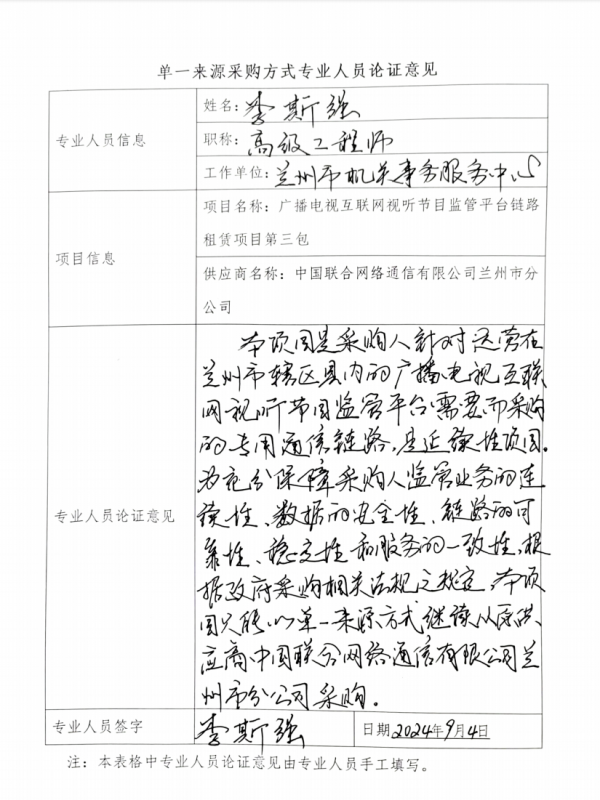 单一来源采购方式专业人员论证意见
专业人员信息
姓名：李斯强
职称：高级工程师
工作单位：兰州市机关事务服务中心
项目信息
项目名称：广播电视互联网视听节目监管平台链路
租赁项目第三包
供应商名称：中国联合网络通信有限公司兰州市分
公司
专业人员论证意见
本项目是采购人针对运营在
兰州市辖区县内的广播电视互联
网视听节目监管平台需要而采购
的专用通信链路，是延续性项目。
为充分保障采购人监管业务的连
续性、数据的安全性、链路的可
靠性、稳定性和服务的一致性，根
据政府采购相关法规之规定，本项
目只能以单一来源方式继续从原供
应商中国联合网络通信有限公司兰
州市分公司采购。
专业人员签字
李斯强
日期 2024年9月4日
注：本表格中专业人员论证意见由专业人员手工填写。